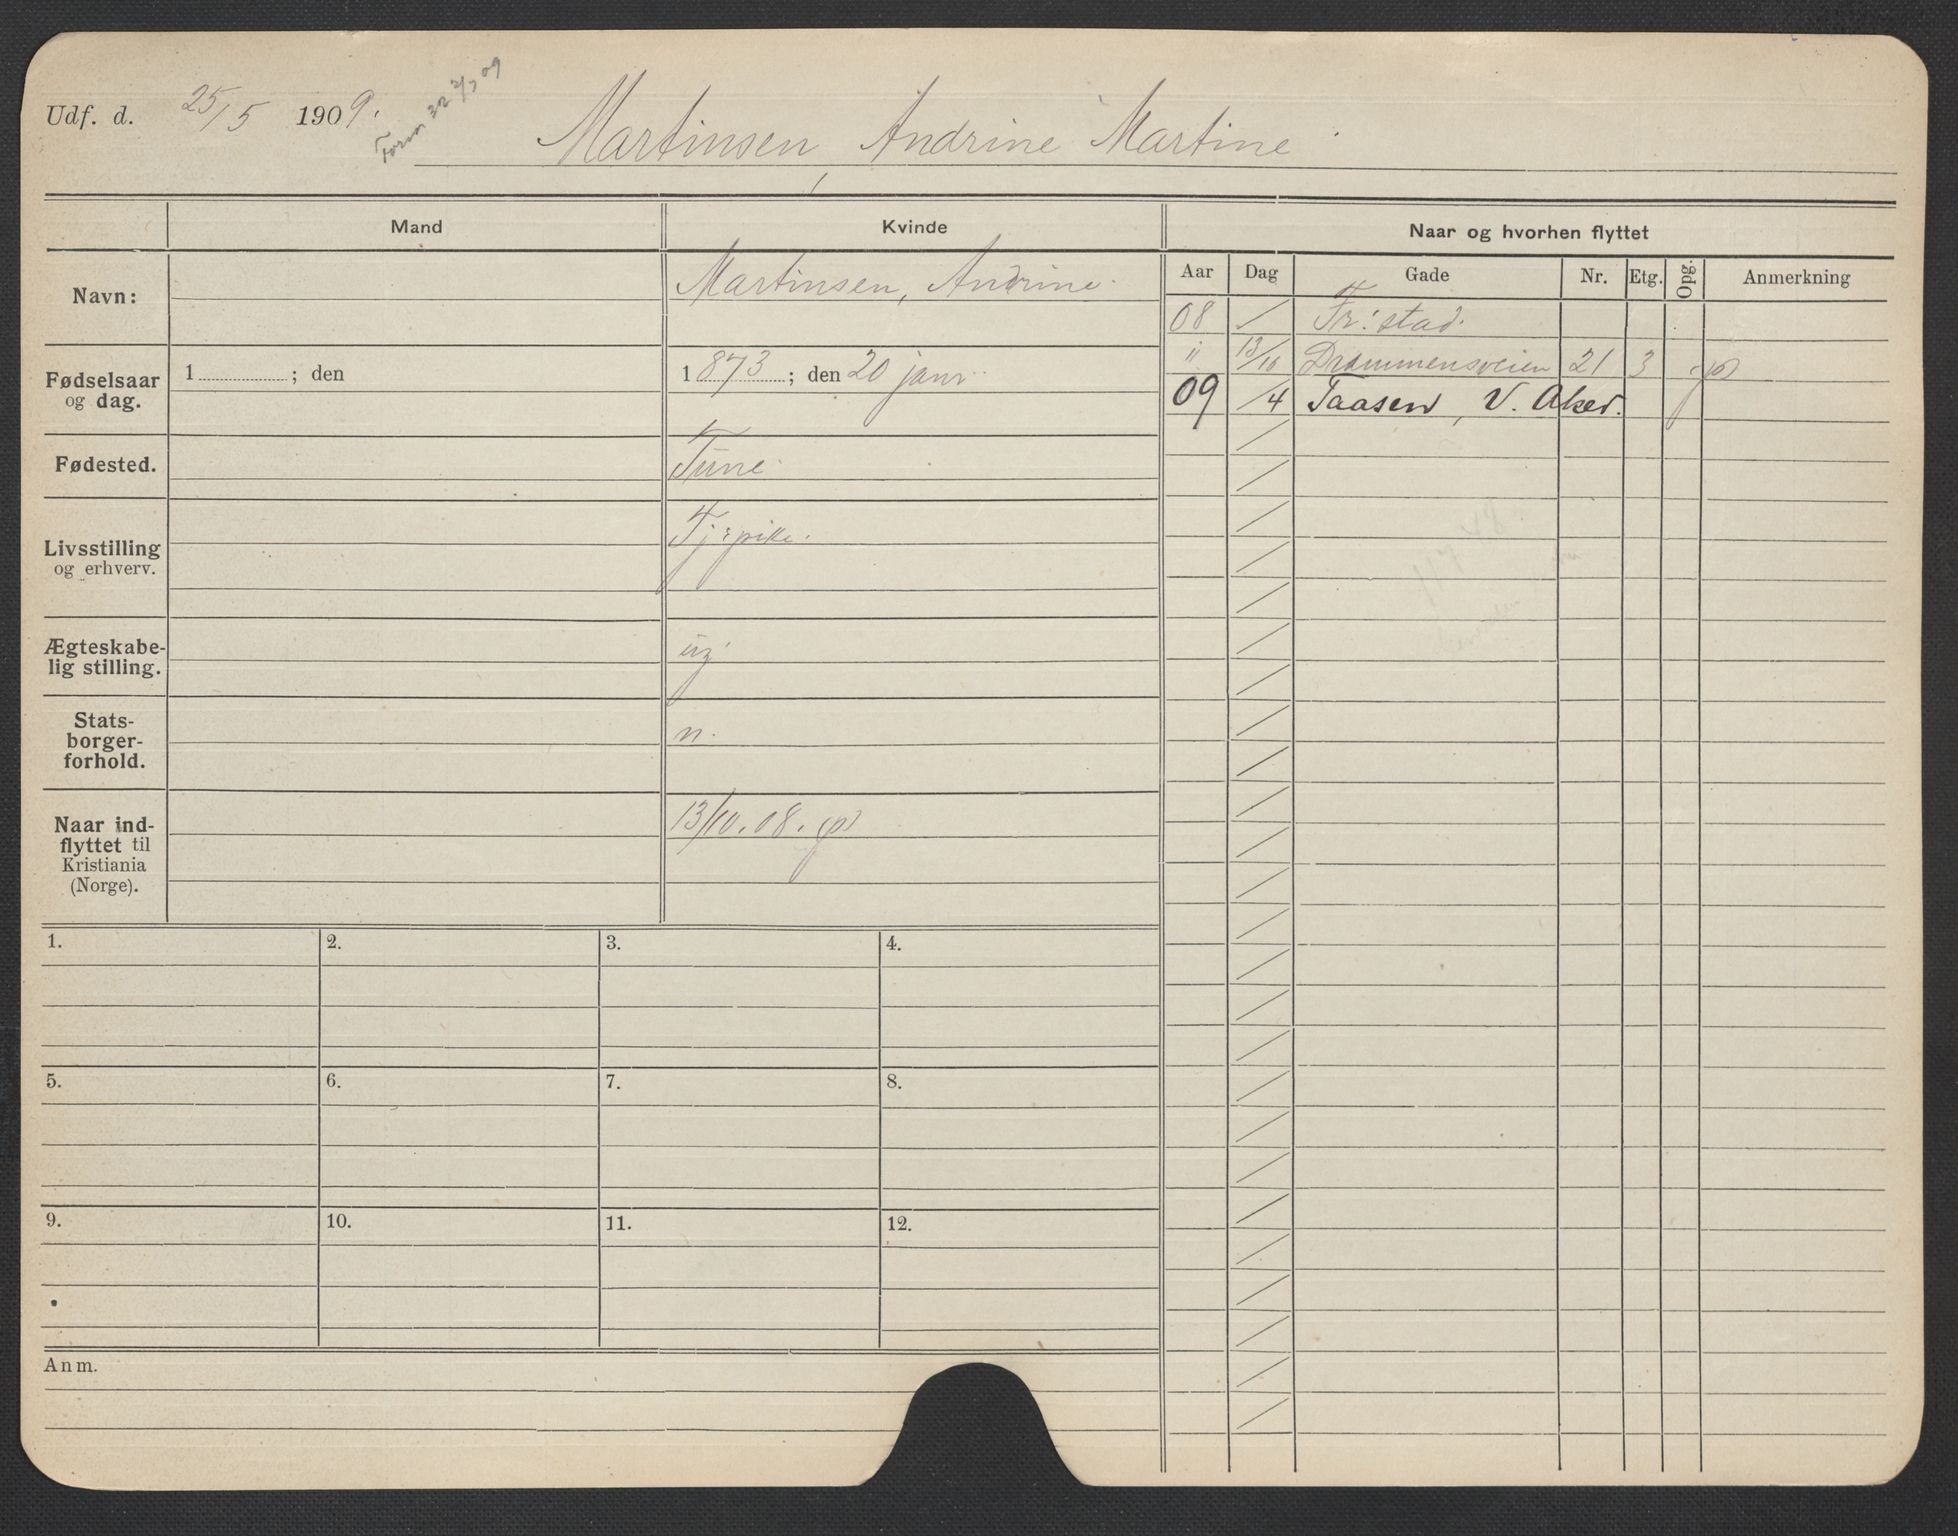 Udf. d. 25/5 1909.
Martinsen, Andrine Martine
Mand
Kvinde
Naar og hvorhen flyttet
Aar Dag Gade Nr. Etg. Opg. Anmerkning
Navn:
Martinsen, Andrine.
Fødselsaar
og dag.
1 ; den
1873 ; den 20 janr.
Fødested.
Tune.
Livsstilling
og erhverv.
Tj:pike.
Ægteskabe-
lig stilling.
ug
Stats-
borger-
forhold.
n.
Naar ind-
flyttet til
Kristiania
(Norge).
13/10. 08. (p)
08 / Fr:stad.
" 13/10 Drammensveien 21 3 (p)
09 /4 Taasen, V. Aker.
1. 2. 3. 4.
5. 6. 7. 8.
9. 10. 11. 12.
Anm.